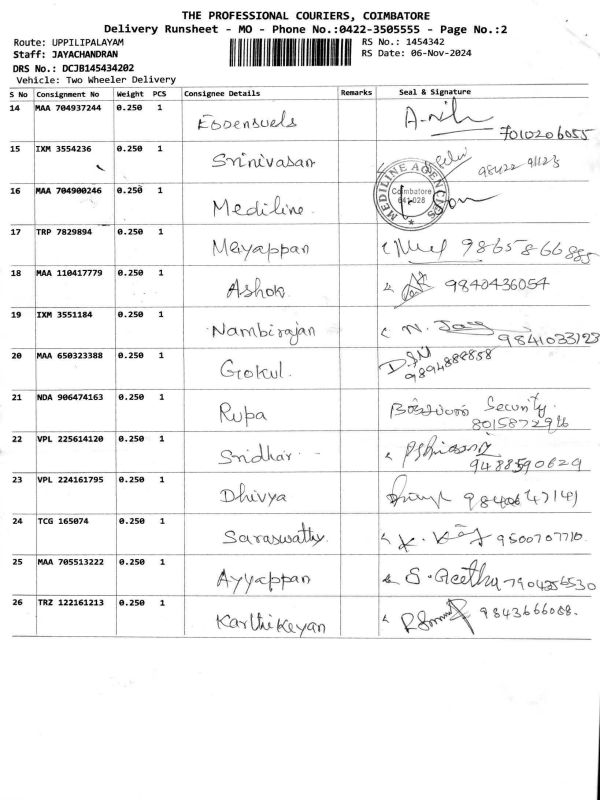 THE PROFESSIONAL COURIERS, COIMBATORE
Delivery Runsheet - MO - Phone No.:0422-3505555 - Page No.:2
Route: UPPILIPALAYAM RS No.: 1454342
Staff: JAYACHANDRAN RS Date: 06-Nov-2024
DRS No.: DCJB145434202
Vehicle: Two Wheeler Delivery
S No Consignment No Weight PCS Consignee Details Remarks Seal & Signature
14 MAA 704937244 0.250 1 7010206055
15 IXM 3554236 0.250 1 Srinivasan 98422 91123
16 MAA 704900246 0.250 1 Mediline MEDILINE AGENCIES Coimbatore 641 028
17 TRP 7829894 0.250 1 Mayappan 98658 66885
18 MAA 110417779 0.250 1 Ashok 9840436054
19 IXM 3551184 0.250 1 Nambirajan N. Jay 9841033123
20 MAA 650323388 0.250 1 Gokul. 9894888858
21 NDA 906474163 0.250 1 Rupa Security.
22 VPL 225614120 0.250 1 Sridhar 9488590629
23 VPL 224161795 0.250 1 Dhivya
24 TCG 165074 0.250 1 Saraswathy 9500707710.
25 MAA 705513222 0.250 1 Ayyappan S. Geetha 7904356530
26 TRZ 122161213 0.250 1 Karthikeyan 9843666068.